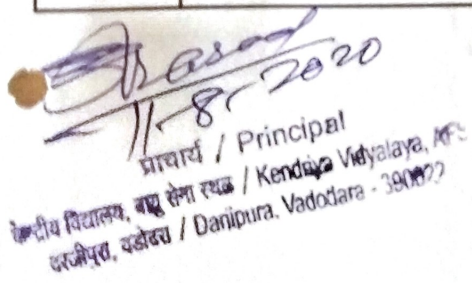 Prasad
11-8-2020
प्राचार्य / Principal
केन्द्रीय विद्यालय, वायु सेना स्थल / Kendriya Vidyalaya, AFS
दरजीपुरा, वडोदरा / Darjipura, Vadodara - 390022